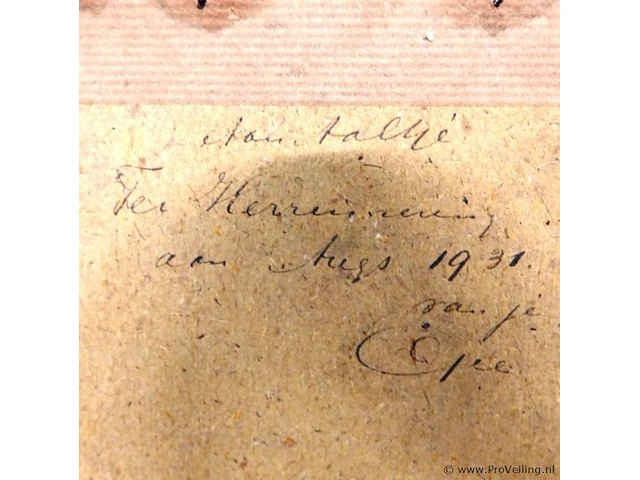 Aan Taltjé
Ter Herrinnering
aan Augs 1931.
van je
© www.ProVeiling.nl